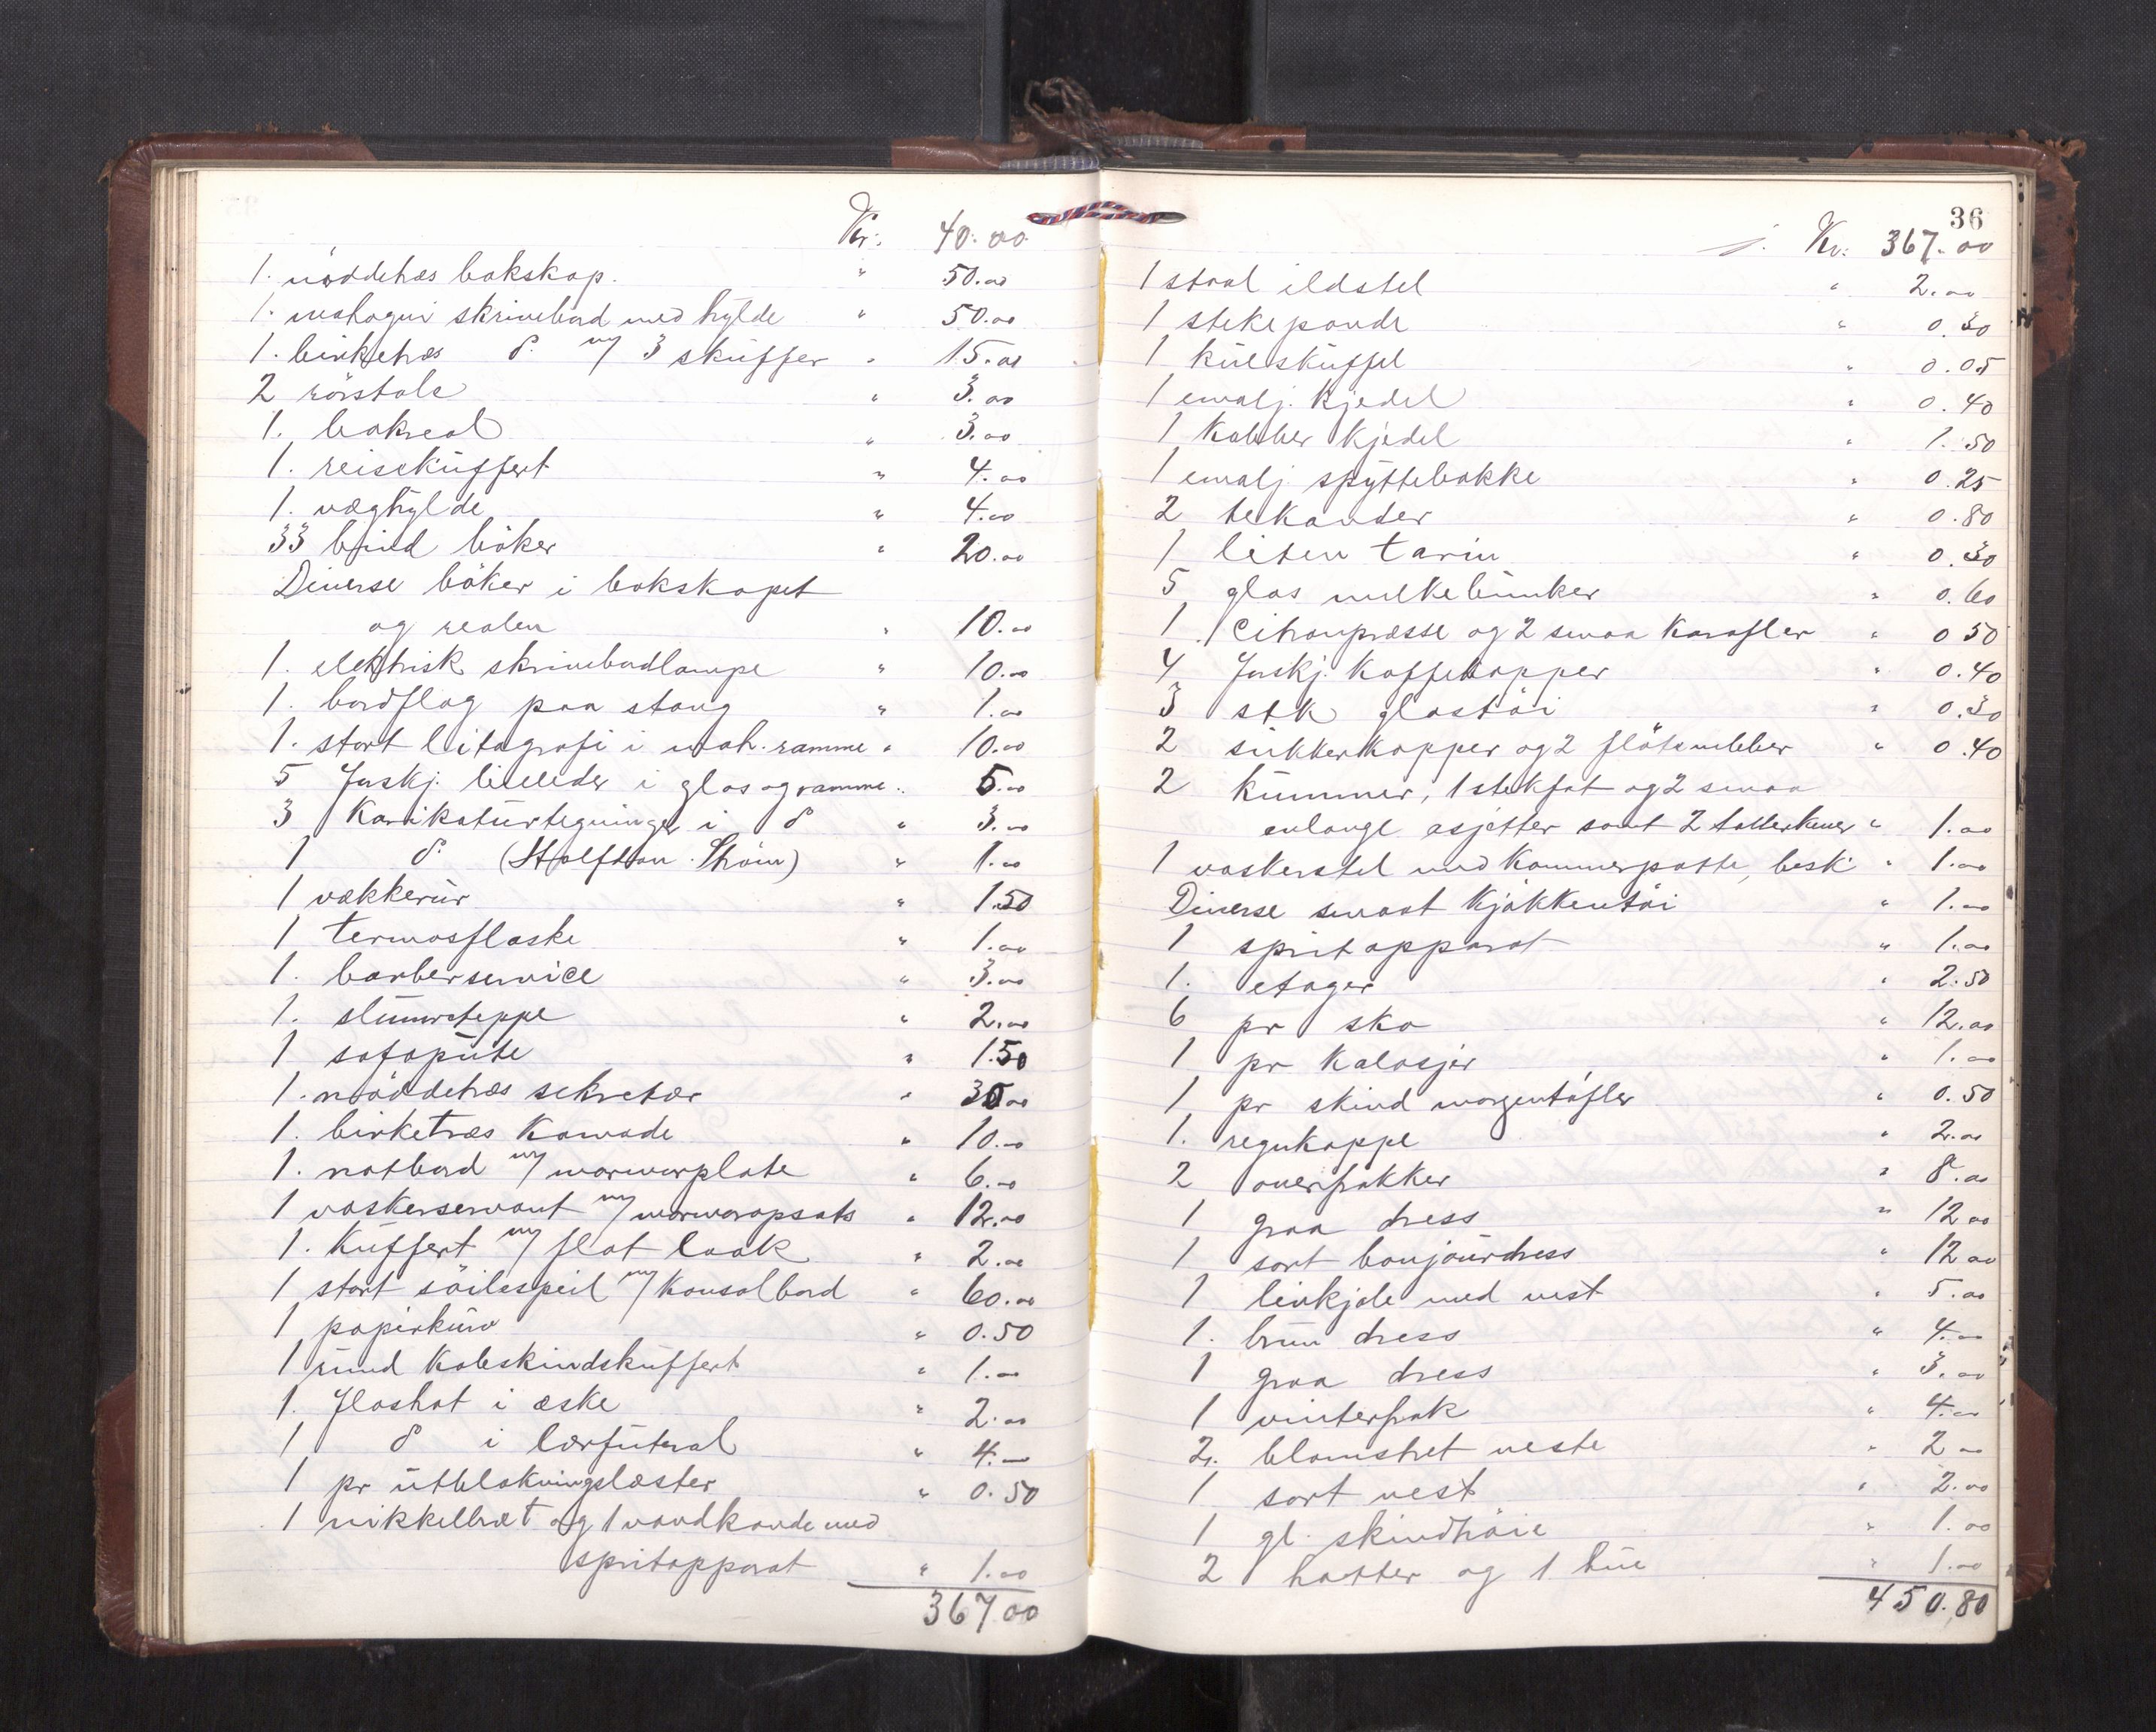 Kr: 40.00
1. nöddetræs bokskap. " 50.00
1. mahogni skrivebord med hylde " 50.00
1. birketræs d: m/ 3 skuffer " 15.00
2 rörstole " 3.00
1. bokreol " 3.00
1. reisekuffert " 4.00
1. væghylde " 4.00
33 bind böker " 20.00
Diverse böker i bokskapet
og reolen " 10.00
1. elektrisk skrivebordlampe " 10.00
1. bordflag paa stang " 1.00
1. stort litografi i mah. ramme " 10.00
5 forskj. billeder i glas og ramme " 5.00
3 karikaturtegninger i d " 3.00
1 d: (Halfdan Ström) " 1.00
1 vækkerur " 1.50
1 termosflaske " 1.00
1. barberservice " 3.00
1. slumreteppe " 2.00
1 sofapute " 1.50
1. nöddetræs sekretær " 35.00
1. birketræs komode " 10.00
1. natbord m/ marmorplate " 6.00
1 vaskeservant m/ marmoropsats " 12.00
1. kuffert m/ flat laak " 2.00
1 stort söilespeil m/ konsolbord " 60.00
1 papirkurv " 0.50
1 rund kobeskindskuffert " 1.00
1. floshat i æske " 2.00
1 d i lærfuteral " 4.00
1 pr utblokningslæster " 0.50
1 nikkelbræt og 1 vandkande med
spritapparat " 1.00
367.00
36
Kr: 367.00
1 staal ildstel " 2.00
1 stekepande " 0.30
1 kulskuffel " 0.05
1 emalj. kjedel " 0.40
1 kobber kjedel " 1.50
1 emalj. spyttebakke " 0.25
2 tekander " 0.80
1 liten tarin " 0.30
5 glas melkebunker " 0.60
1 citronpresse og 2 smaa karafler " 0.50
4 forskj. kaffekopper " 0.40
3 stk glastöi " 0.30
2 sukkerkopper og 2 flötemubber " 0.40
2 kummer, 1 stekfat og 2 smaa
avlange asjetter samt 2 tallerkener " 1.00
1 vaskerstel med kammerpotte, besk. " 1.00
Diverse smaat kjökkentöi " 1.00
1 spritapparat " 1.00
1. etager " 2.50
6 pr sko " 12.00
1 pr kalosjer " 1.00
1 pr skind morgentöfler " 0.50
1. regnkappe " 2.00
2 overfrakker " 8.00
1 graa dress " 12.00
1 sort bonjourdress " 12.00
1 livkjole med vest " 5.00
1. brun dress " 4.00
1 graa dress " 3.00
1 vinterfrak " 4.00
2. blomstret veste " 2.00
1 sort vest " 2.00
1 gl. skindtröie " 1.00
2 hatter og 1 lue " 1.00
450.80